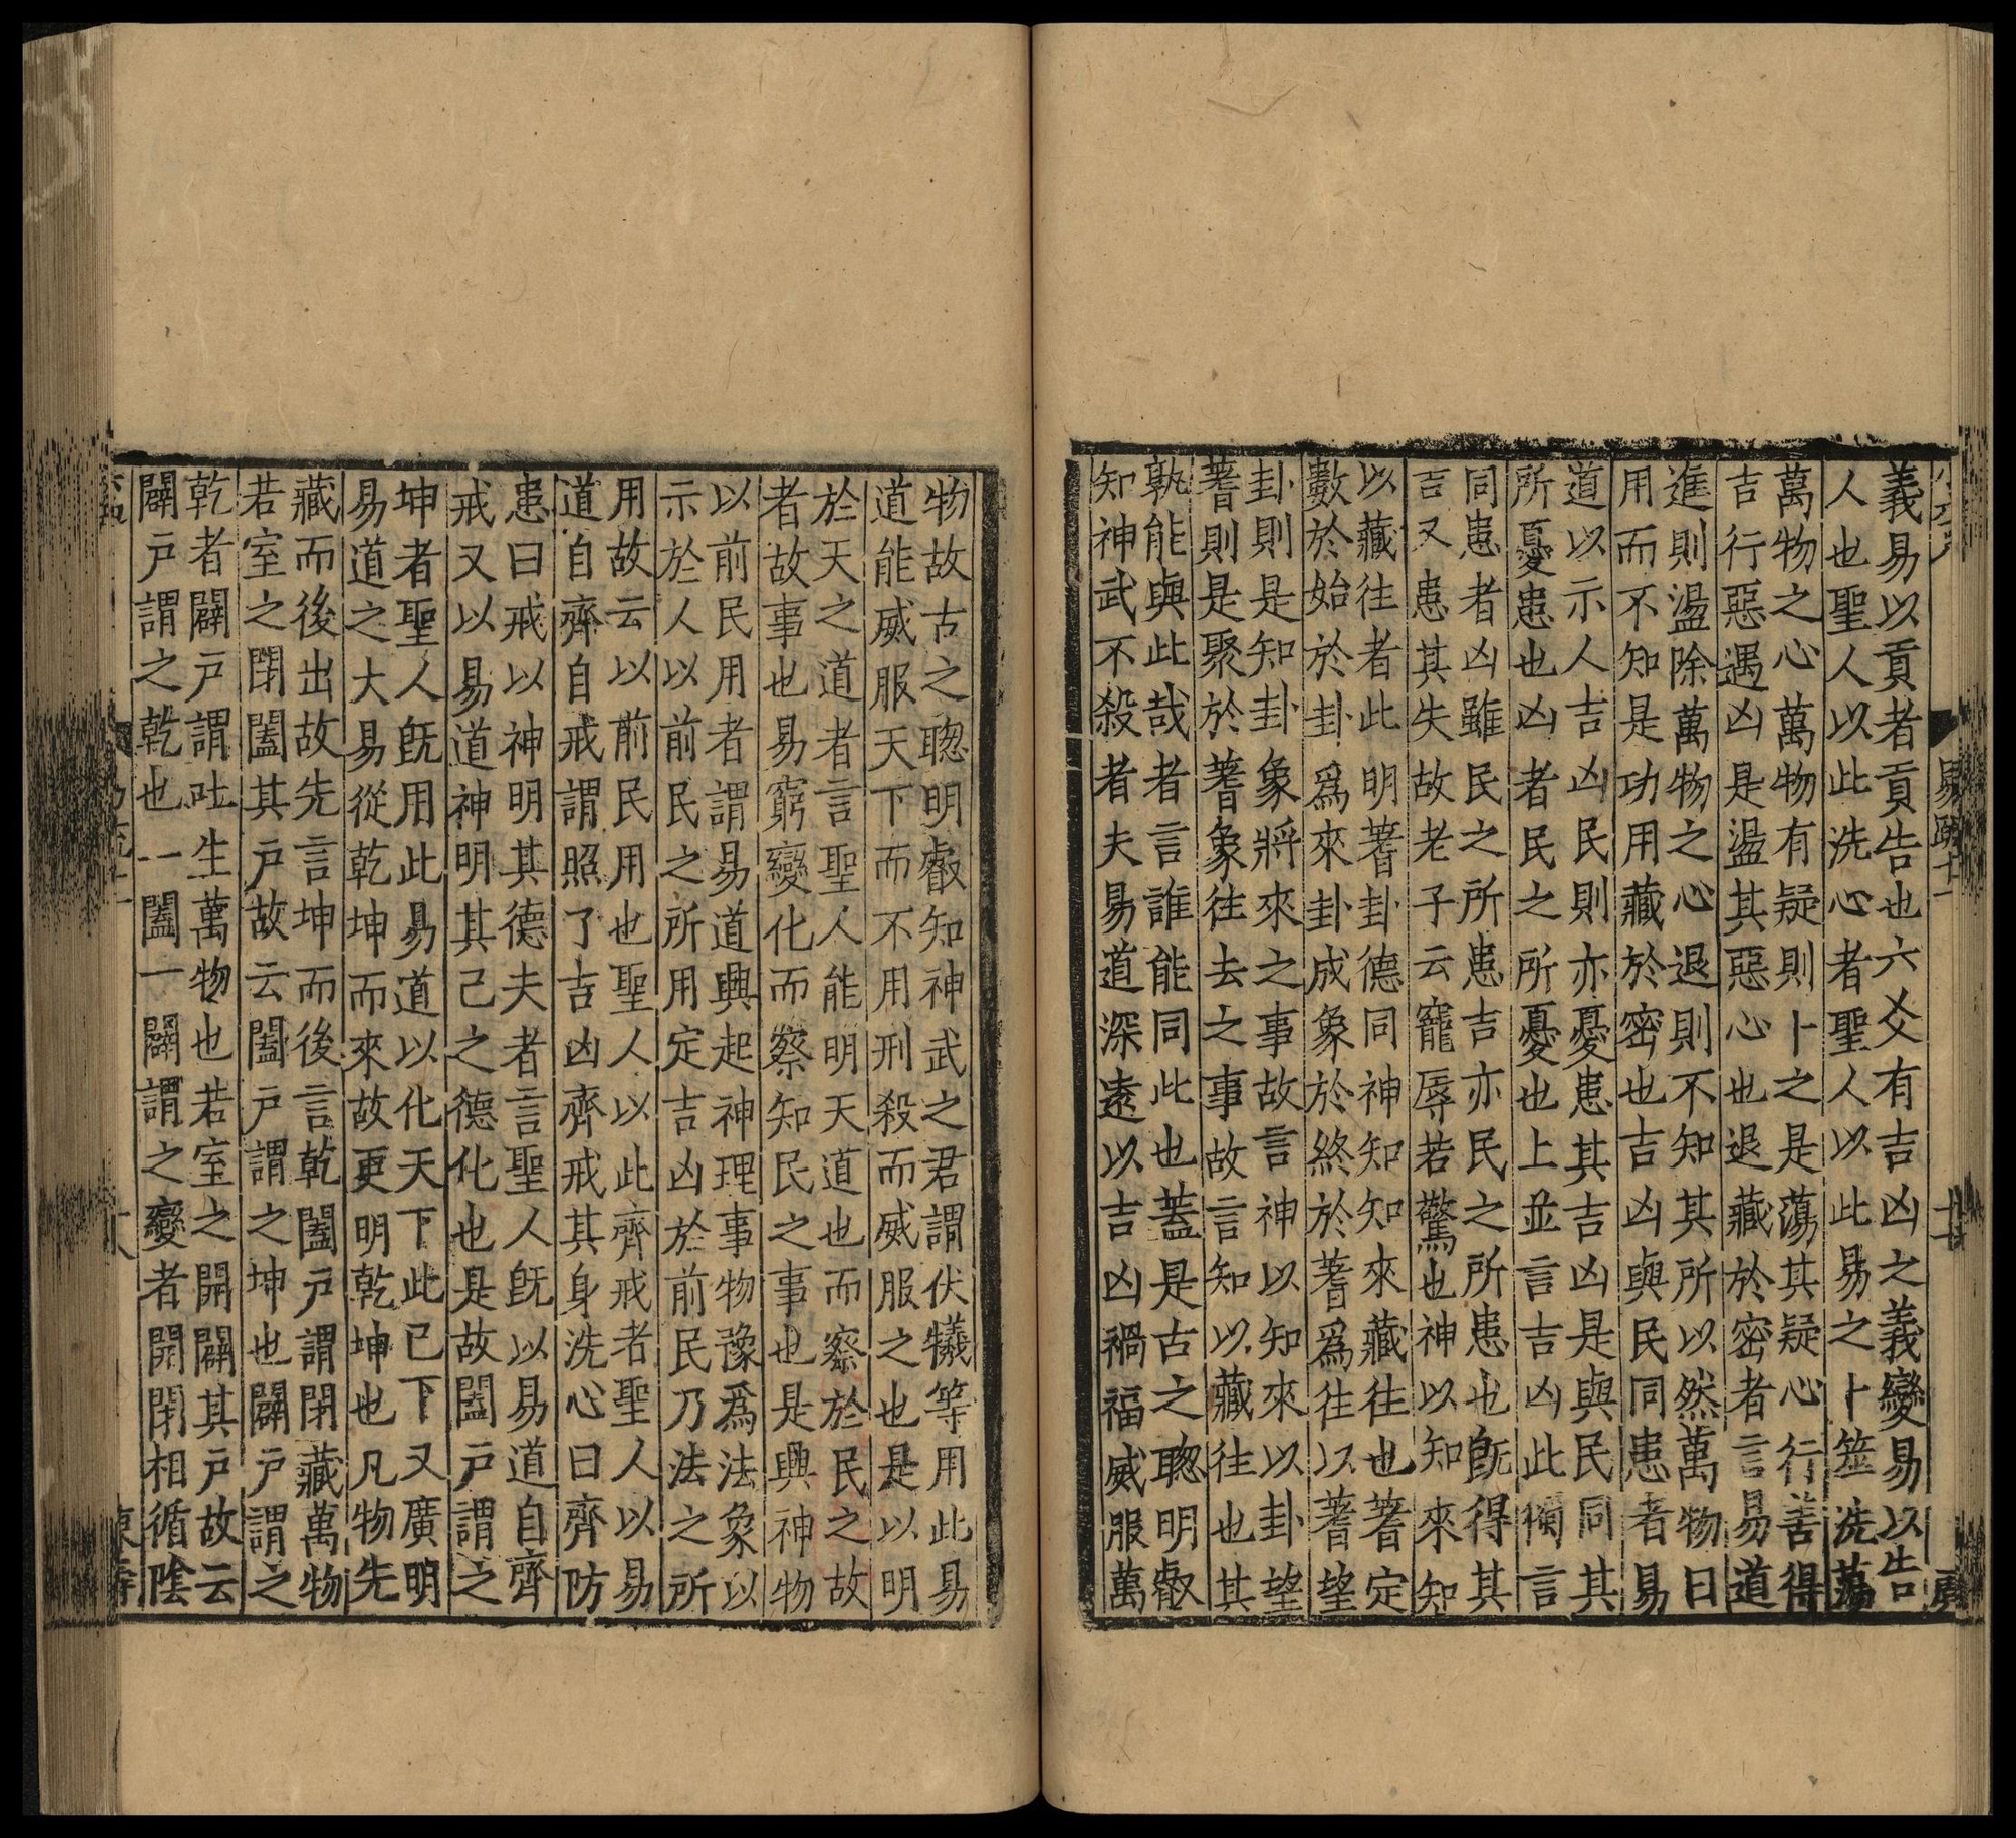 義易以貢者貢告也六爻有吉凶之義變易以告
人也聖人以此洗心者聖人以此易之卜筮洗蕩
萬物之心萬物有疑則卜之是蕩其疑心行善得
吉行惡遇凶是盪其惡心也退藏於密者言易道
進則盪除萬物之心退則不知其所以然萬物日
用而不知是功用藏於密也吉凶與民同患者易
道以示人吉凶民則亦憂患其吉凶是與民同其
所憂患也凶者民之所憂也上並言吉凶此獨言
同患者凶雖民之所患吉亦民之所患也旣得其
吉又患其失故老子云寵辱若驚也神以知來知
以藏往者此明蓍卦德同神知知來藏往也蓍定
數於始於卦爲來卦成象於終於蓍爲往以蓍望
卦則是知卦象將來之事故言神以知來以卦望
蓍則是聚於蓍象往去之事故言知以藏往也其
孰能與此哉者言誰能同此也蓋是古之聰明叡
知神武不殺者夫易道深遠以吉凶禍福威服萬
物故古之聰明叡知神武之君謂伏犧等用此易
道能威服天下而不用刑殺而威服之也是以明
於天之道者言聖人能明天道也而察於民之故
者故事也易窮變化而察知民之事也是興神物
以前民用者謂易道興起神理事物豫爲法象以
示於人以前民之所用定吉凶於前民乃法之所
用故云以前民用也聖人以此齊戒者聖人以易
道自齊自戒謂照了吉凶齊戒其身洗心曰齊防
患曰戒以神明其德夫者言聖人旣以易道自齊
戒又以易道神明其己之德化也是故闔戶謂之
坤者聖人旣用此易道以化天下此已下又廣明
易道之大易從乾坤而來故更明乾坤也凡物先
藏而後出故先言坤而後言乾闔戶謂閉藏萬物
若室之閉闔其戶故云闔戶謂之坤也闢戶謂之
乾者闢戶謂吐生萬物也若室之開闢其戶故云
闢戶謂之乾也一闔一闢謂之變者開閉相循陰